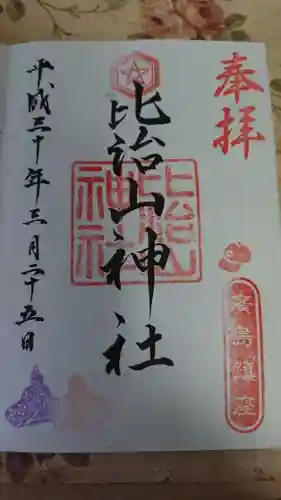 奉拝
廣島鎮座
比治山神社
比治山神社
平成三十年三月二十五日